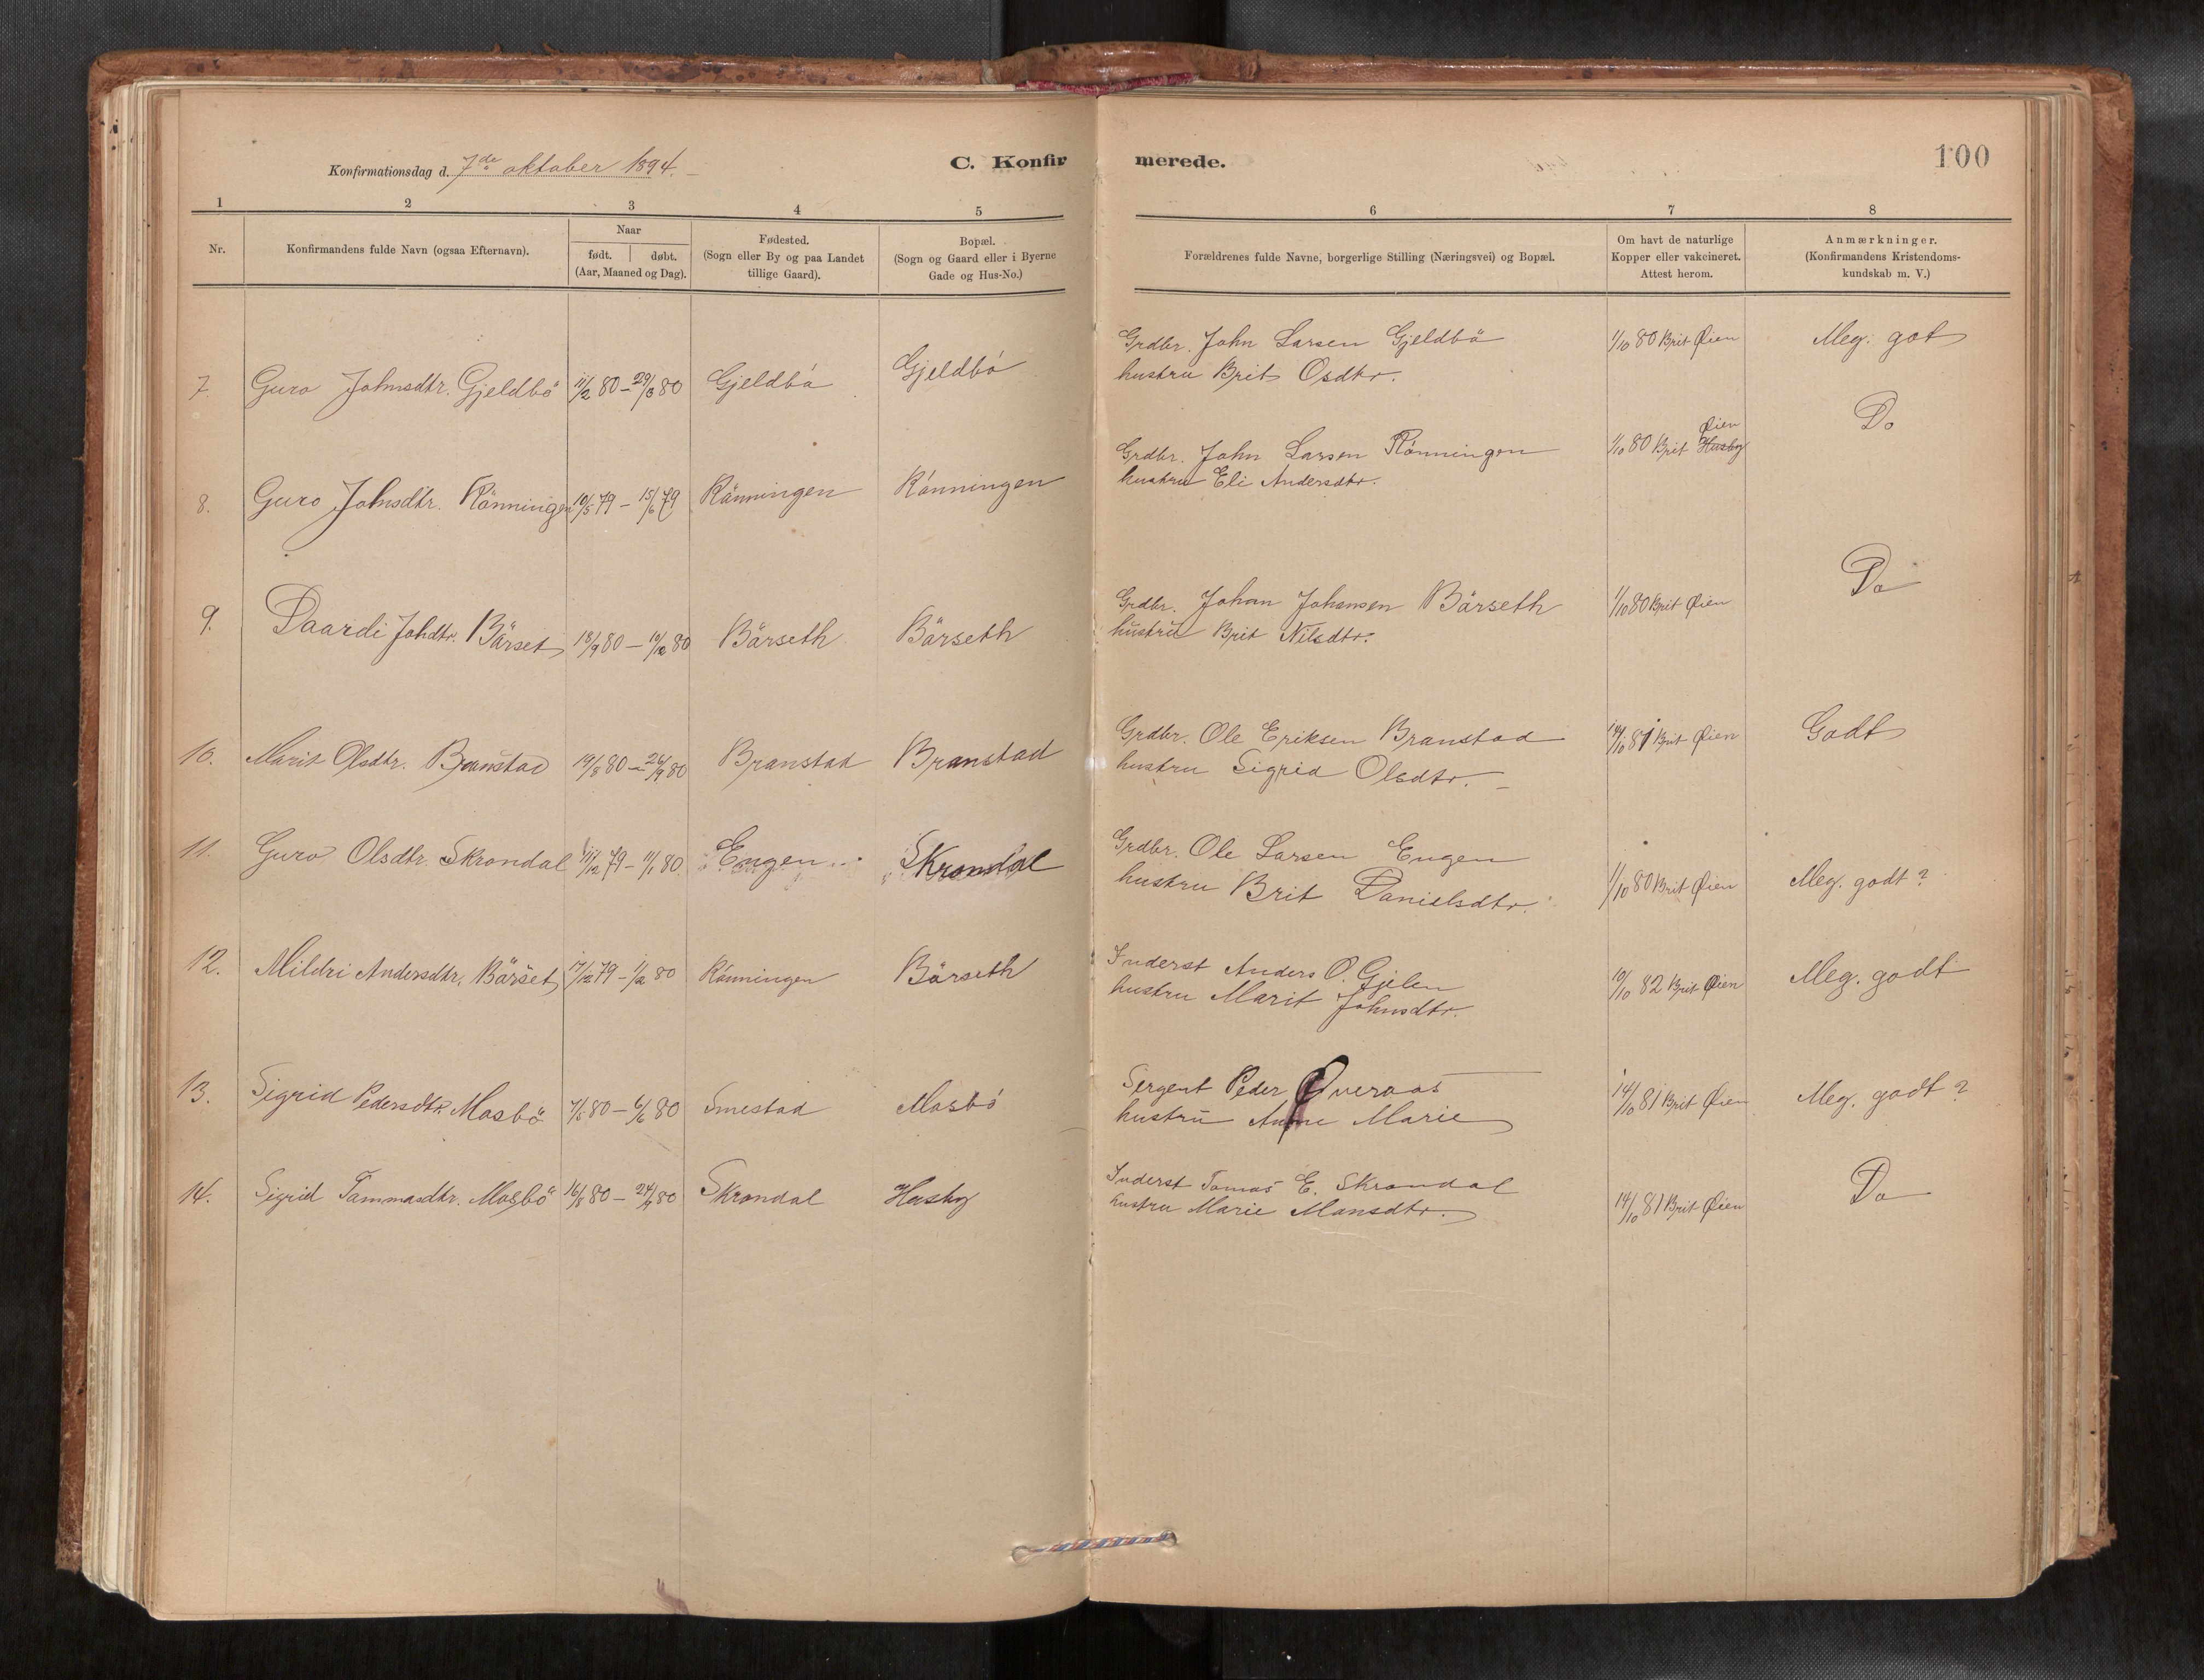 Konfirmationsdag d. 7de oktober 1894.
C. Konfir
merede.
100
1 2 3 4 5 6 7 8
Nr.
Konfirmandens fulde Navn (ogsaa Efternavn).
Naar
født. døbt.
(Aar, Maaned og Dag).
Fødested.
(Sogn eller By og paa Landet
tillige Gaard).
Bopæl.
(Sogn og Gaard eller i Byerne
Gade og Hus-No.)
Forældrenes fulde Navne, borgerlige Stilling (Næringsvei) og Bopæl.
Om havt de naturlige
Kopper eller vakcineret.
Attest herom.
Anmærkninger.
(Konfirmandens Kristendoms-
kundskab m. V.)
7. Guro Johnsdtr. Gjeldbö 11/2 80 – 29/3 80 Gjeldbö Gjeldbö
Grdbr. John Larsen Gjeldbö
hustru Brit Osdtr.
1/10 80 Brit Øien Meg. got
8. Guro Johnsdtr. Rönningen 10/5 79 – 15/6 79 Rönningen Rönningen
Grdbr. John Larsen Rönningen
hustru Eli Andersdtr.
Øien
1/10 80 Brit Husby Do
9. Daardi Johdtr. Bärset 18/9 80 – 19/12 80 Bärseth Bärseth
Grdbr. Johan Johansen Bärseth
hustru Brit Nilsdtr.
1/10 80 Brit Øien Do
10. Marit Olsdtr. Branstad 19/8 80 – 26/9 80 Branstad Branstad
Grdbr. Ole Eriksen Branstad
hustru Sigrid Olsdtr.
14/10 81 Brit Øien Godt
11. Guro Olsdtr. Skrondal 11/12 79 – 11/1 80 Engen Skrondal
Grdbr. Ole Larsen Engen
hustru Brit Danielsdtr.
1/10 80 Brit Øien Meg. godt?
12. Mildri Andersdtr. Bärset 17/12 79 – 1/2 80 Rönningen Bärseth
Inderst Anders O. Gjelen
hustru Marit Johnsdtr.
10/10 82 Brit Øien Meg. godt
13. Sigrid Pedersdtr Mosbö 7/5 80 – 6/6 80 Smestad Mosbö
Sergent Peder Øveraas
hustru Anne Marie
14/10 81 Brit Øien Meg. godt?
14. Sigrid Tammasdtr. Mosbö 16/8 80 – 24/9 80 Skrondal Husby
Inderst Tomas E. Skrondal
hustru Marie Mansdtr.
14/10 81 Brit Øien Do